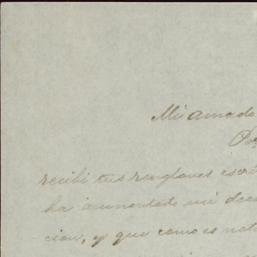 Mi amado
recibí tus renglones escri
ha aumentado mi dec
cion, y que como es nat